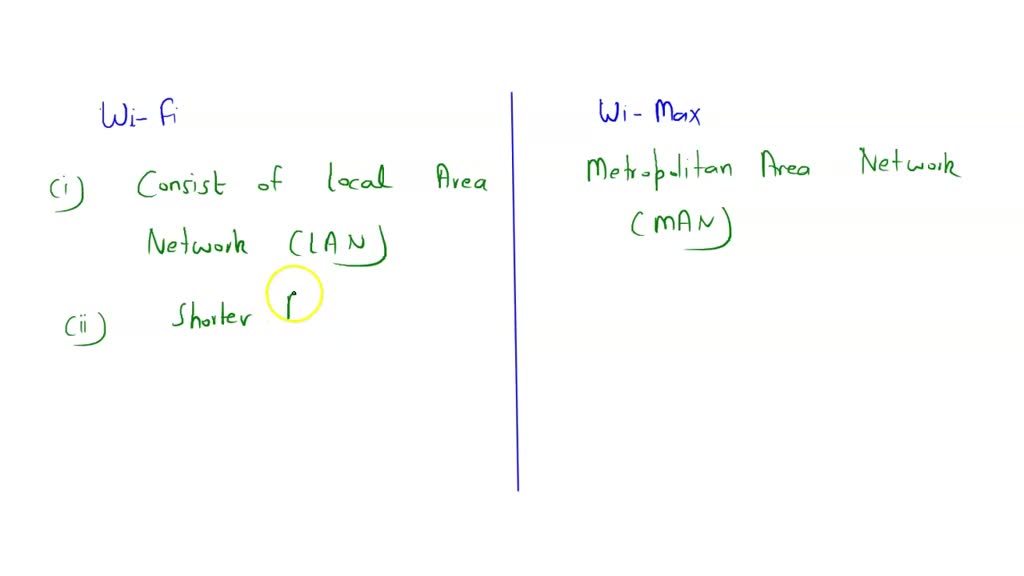 Wi-Fi
(i) Consist of local Area
Network (LAN)
(ii) Shorter
Wi-Max
Metropolitan Area Network
(MAN)